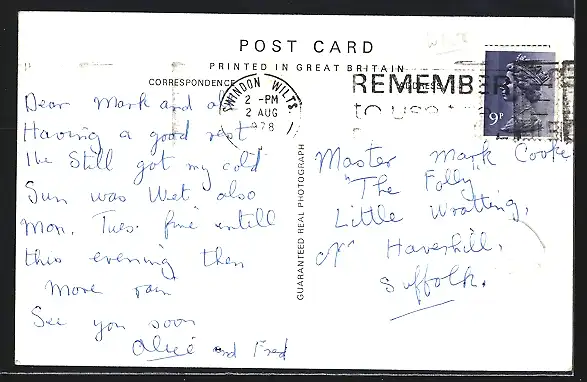 POST CARD
PRINTED IN GREAT BRITAIN
CORRESPONDENCE
ADDRESS
SWINDON WILTS.
2 - PM
2 AUG
1978
REMEMBER
to use
9P
Dear Mark and all
Having a good rest
I've Still got my cold
Sun was Wet also
Mon. Tues. fine untill
this evening then
more rain
See you soon
Alice and Fred
GUARANTEED REAL PHOTOGRAPH
Master Mark Cooke
"The Folly"
Little Wratting,
Nr Haverhill,
Suffolk.